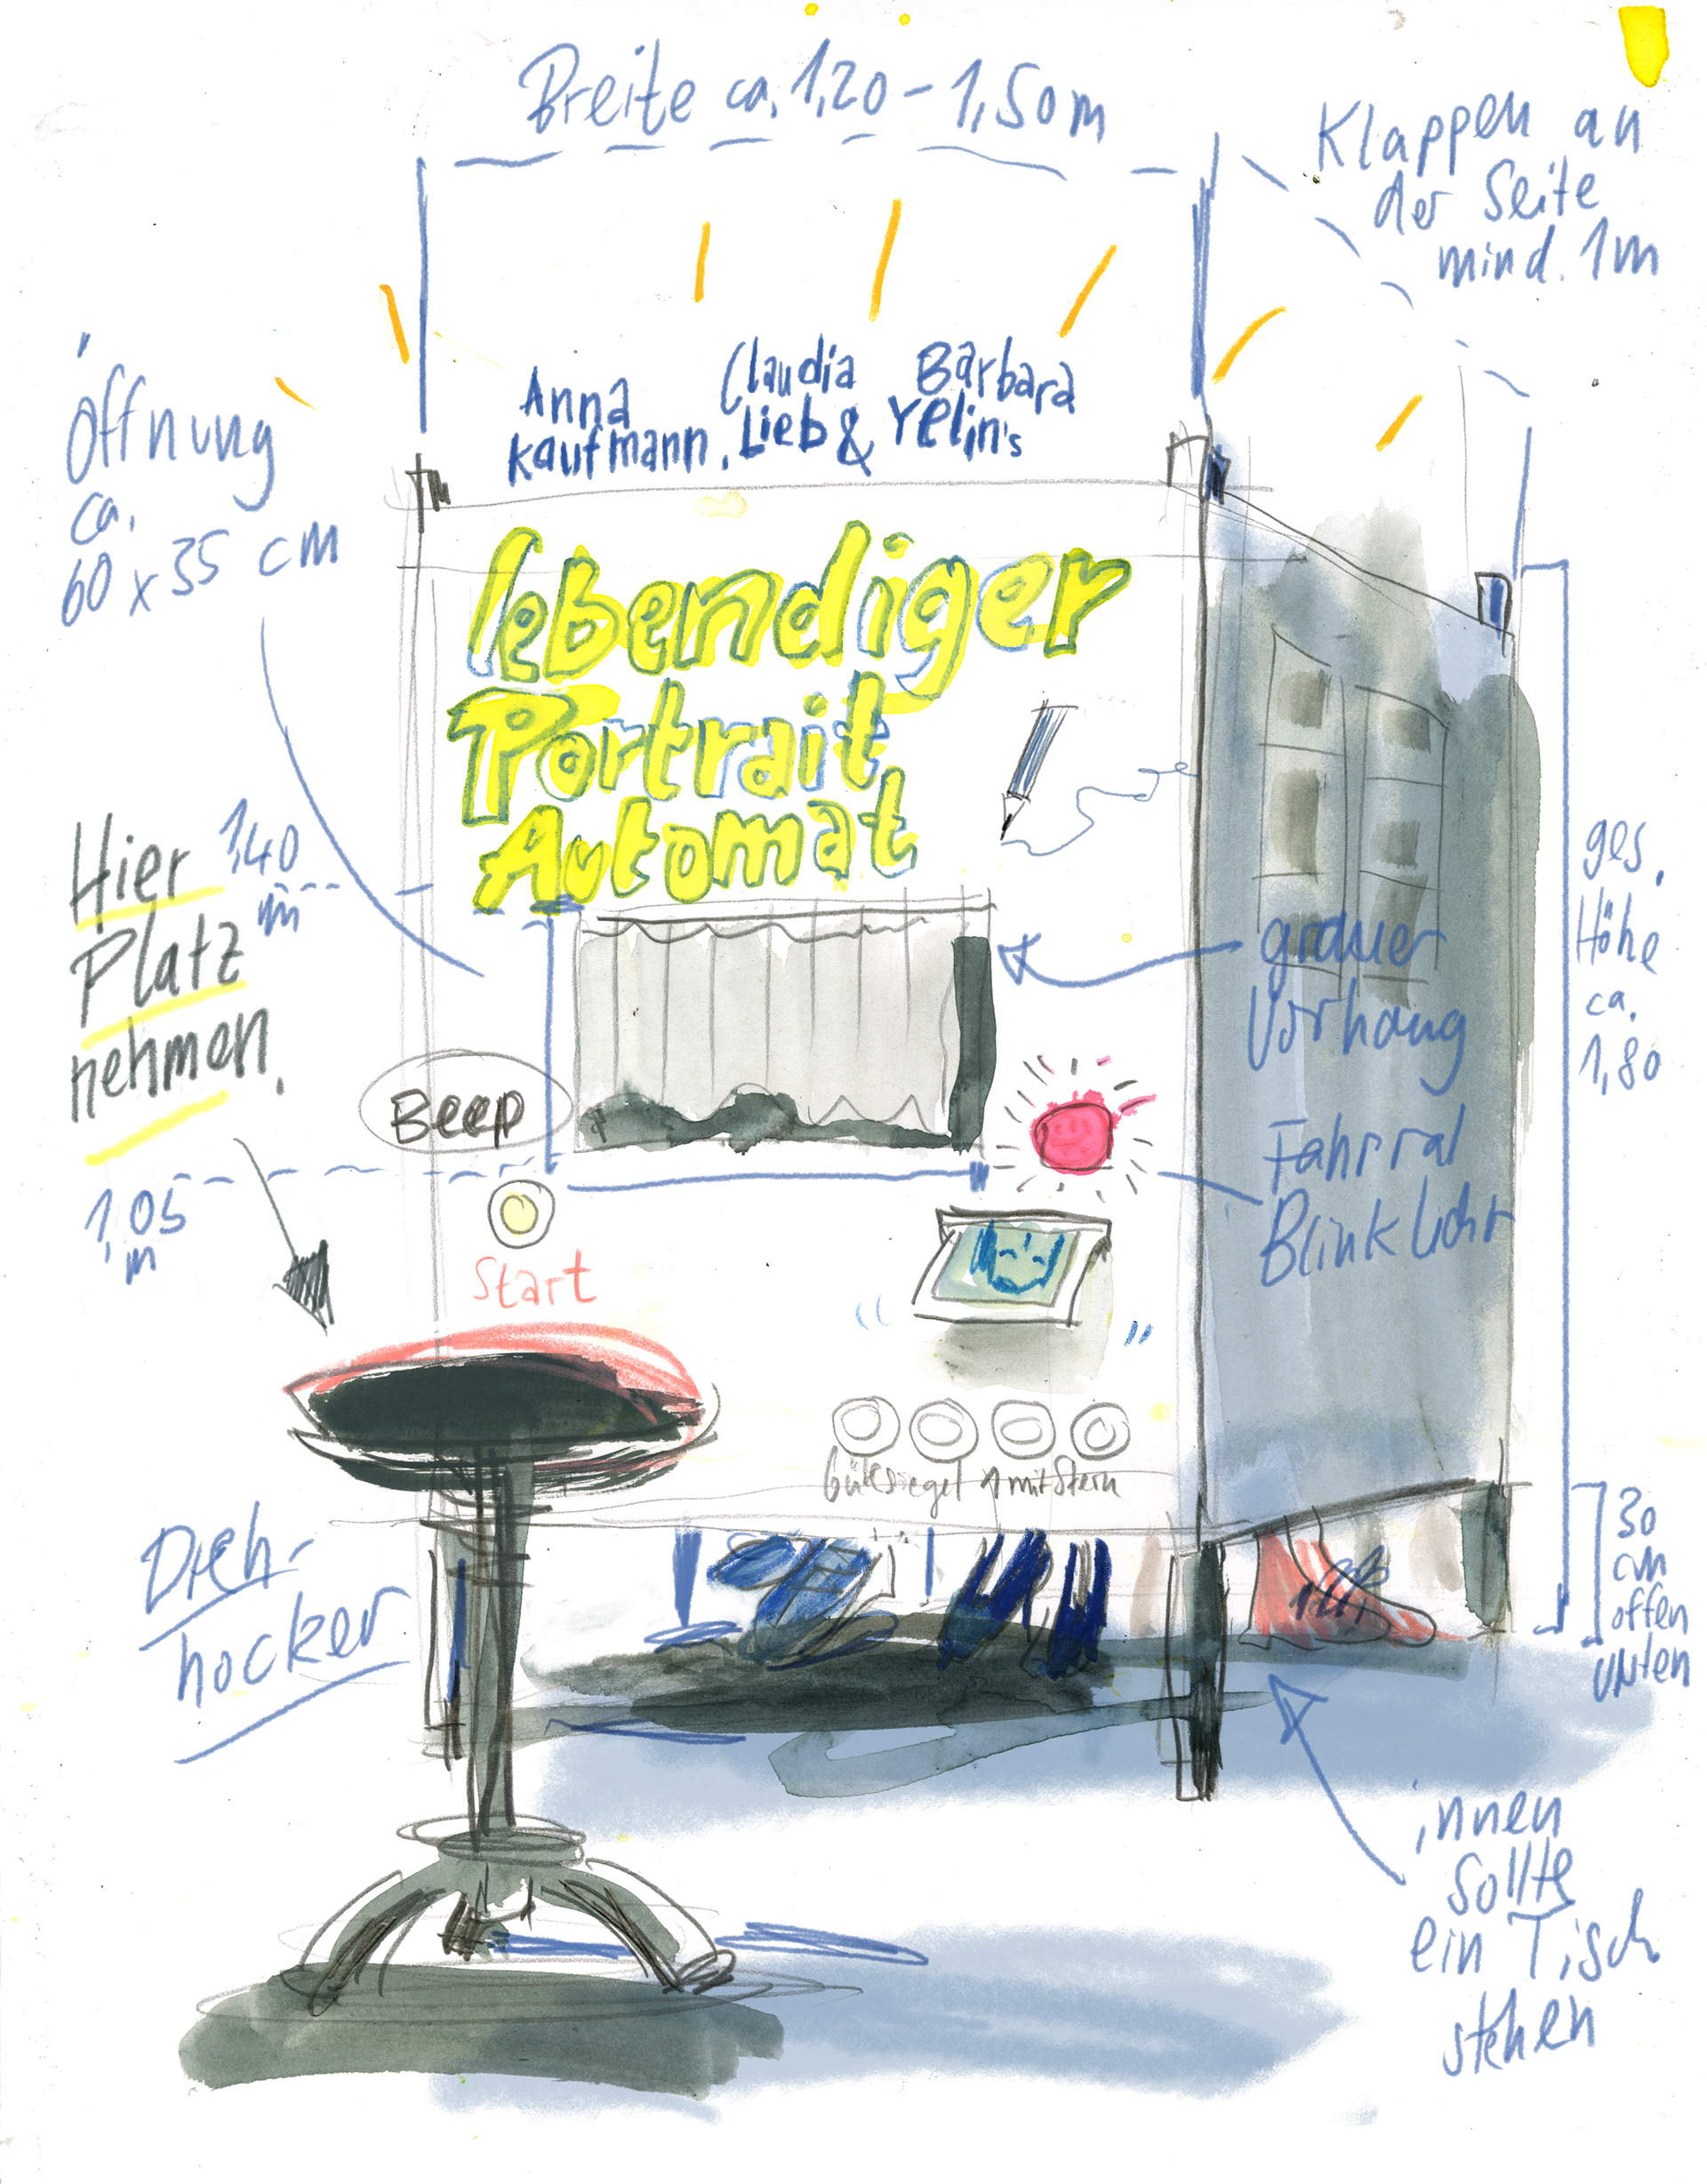 Breite ca. 1,20 - 1,50 m
Klappen an
der Seite
mind. 1m
Öffnung
ca.
60 x 35 cm
Anna
Kaufmann,
Claudia
Lieb &
Barbara
Yelin's
lebendiger
Portrait
Automat
Hier
Platz
nehmen.
1,40
m
grauer
Vorhang
ges.
Höhe
ca.
1,80
Beep
1,05
m
Start
Fahrrad
Blinklicht
Gütesiegel 1 mit Stern
Dreh-
hocker
30
cm
offen
unten
innen
sollte
ein Tisch
stehen